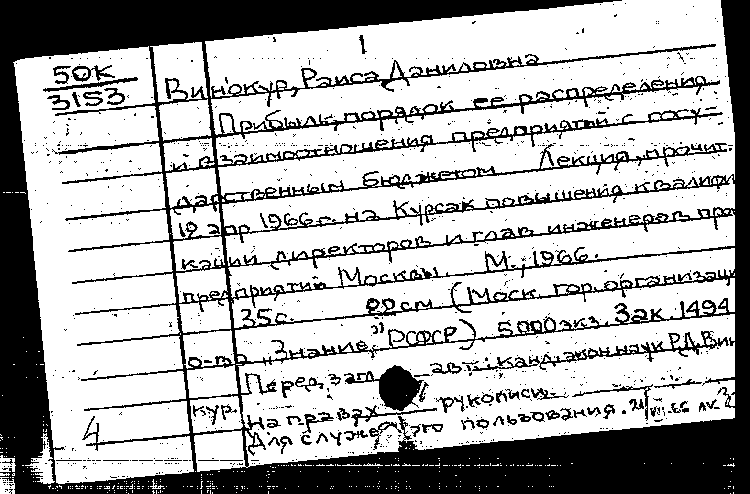 1
50К
3153
Винокур, Раиса Даниловна
Прибыль, порядок ее распределения
и взаимоотношения предприятий с госу-
дарственным бюджетом. Лекция, прочит.
19 апр 1966 г. на Курсах повышения квалифи
кации директоров и глав. инженеров про
предприятий Москвы. М., 1966.
35 с. 20 см (Моск. гор. организаци
о-ва "Знание" РСФСР). 5000 экз. Зак. 1494
Перед загл авт.: канд. экон. наук Р.Д. Вин
кур.
На правах рукописи.
Для служебного пользования.
4